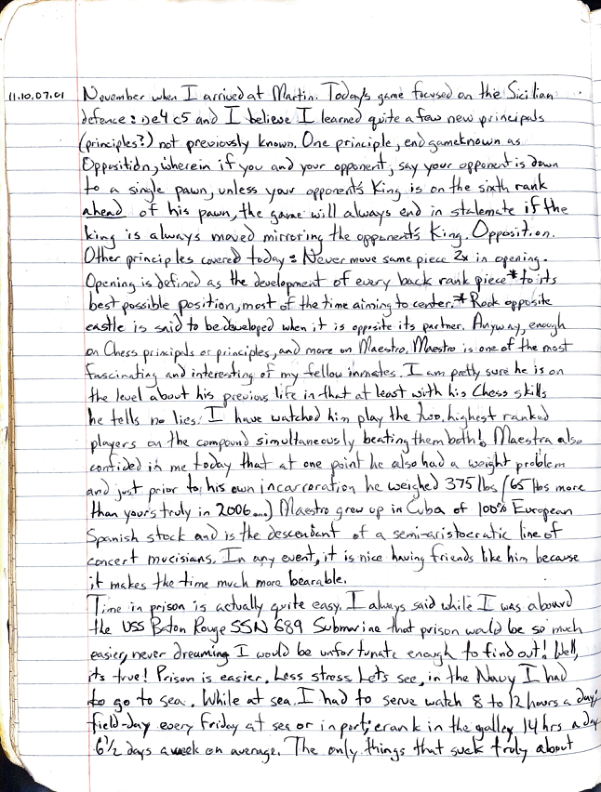 11.10.07.01 November when I arrived at Martin. Today's game focused on the Sicilian
defence: e4 c5 and I believe I learned quite a few new principals
(principles?) not previously known. One principle, endgame known as
Opposition, wherein if you and your opponent, say your opponent is down
to a single pawn, unless your opponent's King is on the sixth rank
ahead of his pawn, the game will always end in stalemate if the
king is always moved mirroring the opponent's King. Opposition.
Other principles covered today: Never move same piece 2x in opening.
Opening is defined as the development of every back rank piece* to its
best possible position, most of the time aiming to center. *Rook opposite
castle is said to be developed when it is opposite its partner. Anyway, enough
on Chess principals or principles, and more on Maestro. Maestro is one of the most
fascinating and interesting of my fellow inmates. I am pretty sure he is on
the level about his previous life in that at least with his Chess skills
he tells no lies. I have watched him play the two highest ranked
players on the compound simultaneously beating them both! Maestro also
confided in me today that at one point he also had a weight problem
and just prior to his own incarceration he weighed 375 lbs (65 lbs more
than yours truly in 2006...) Maestro grew up in Cuba of 100% European
Spanish stock and is the descendant of a semi-aristocratic line of
concert mucisians. In any event, it is nice having friends like him because
it makes the time much more bearable.
Time in prison is actually quite easy. I always said while I was aboard
the USS Baton Rouge SSN 689 Submarine that prison would be so much
easier, never dreaming I would be unfortunate enough to find out! Well,
its true! Prison is easier. Less stress. Lets see, in the Navy I had
to go to sea. While at sea I had to serve watch 8 to 12 hours a day;
field-day every Friday at sea or in port; crank in the galley 14 hrs a day
6 1/2 days a week on average. The only things that suck truly about